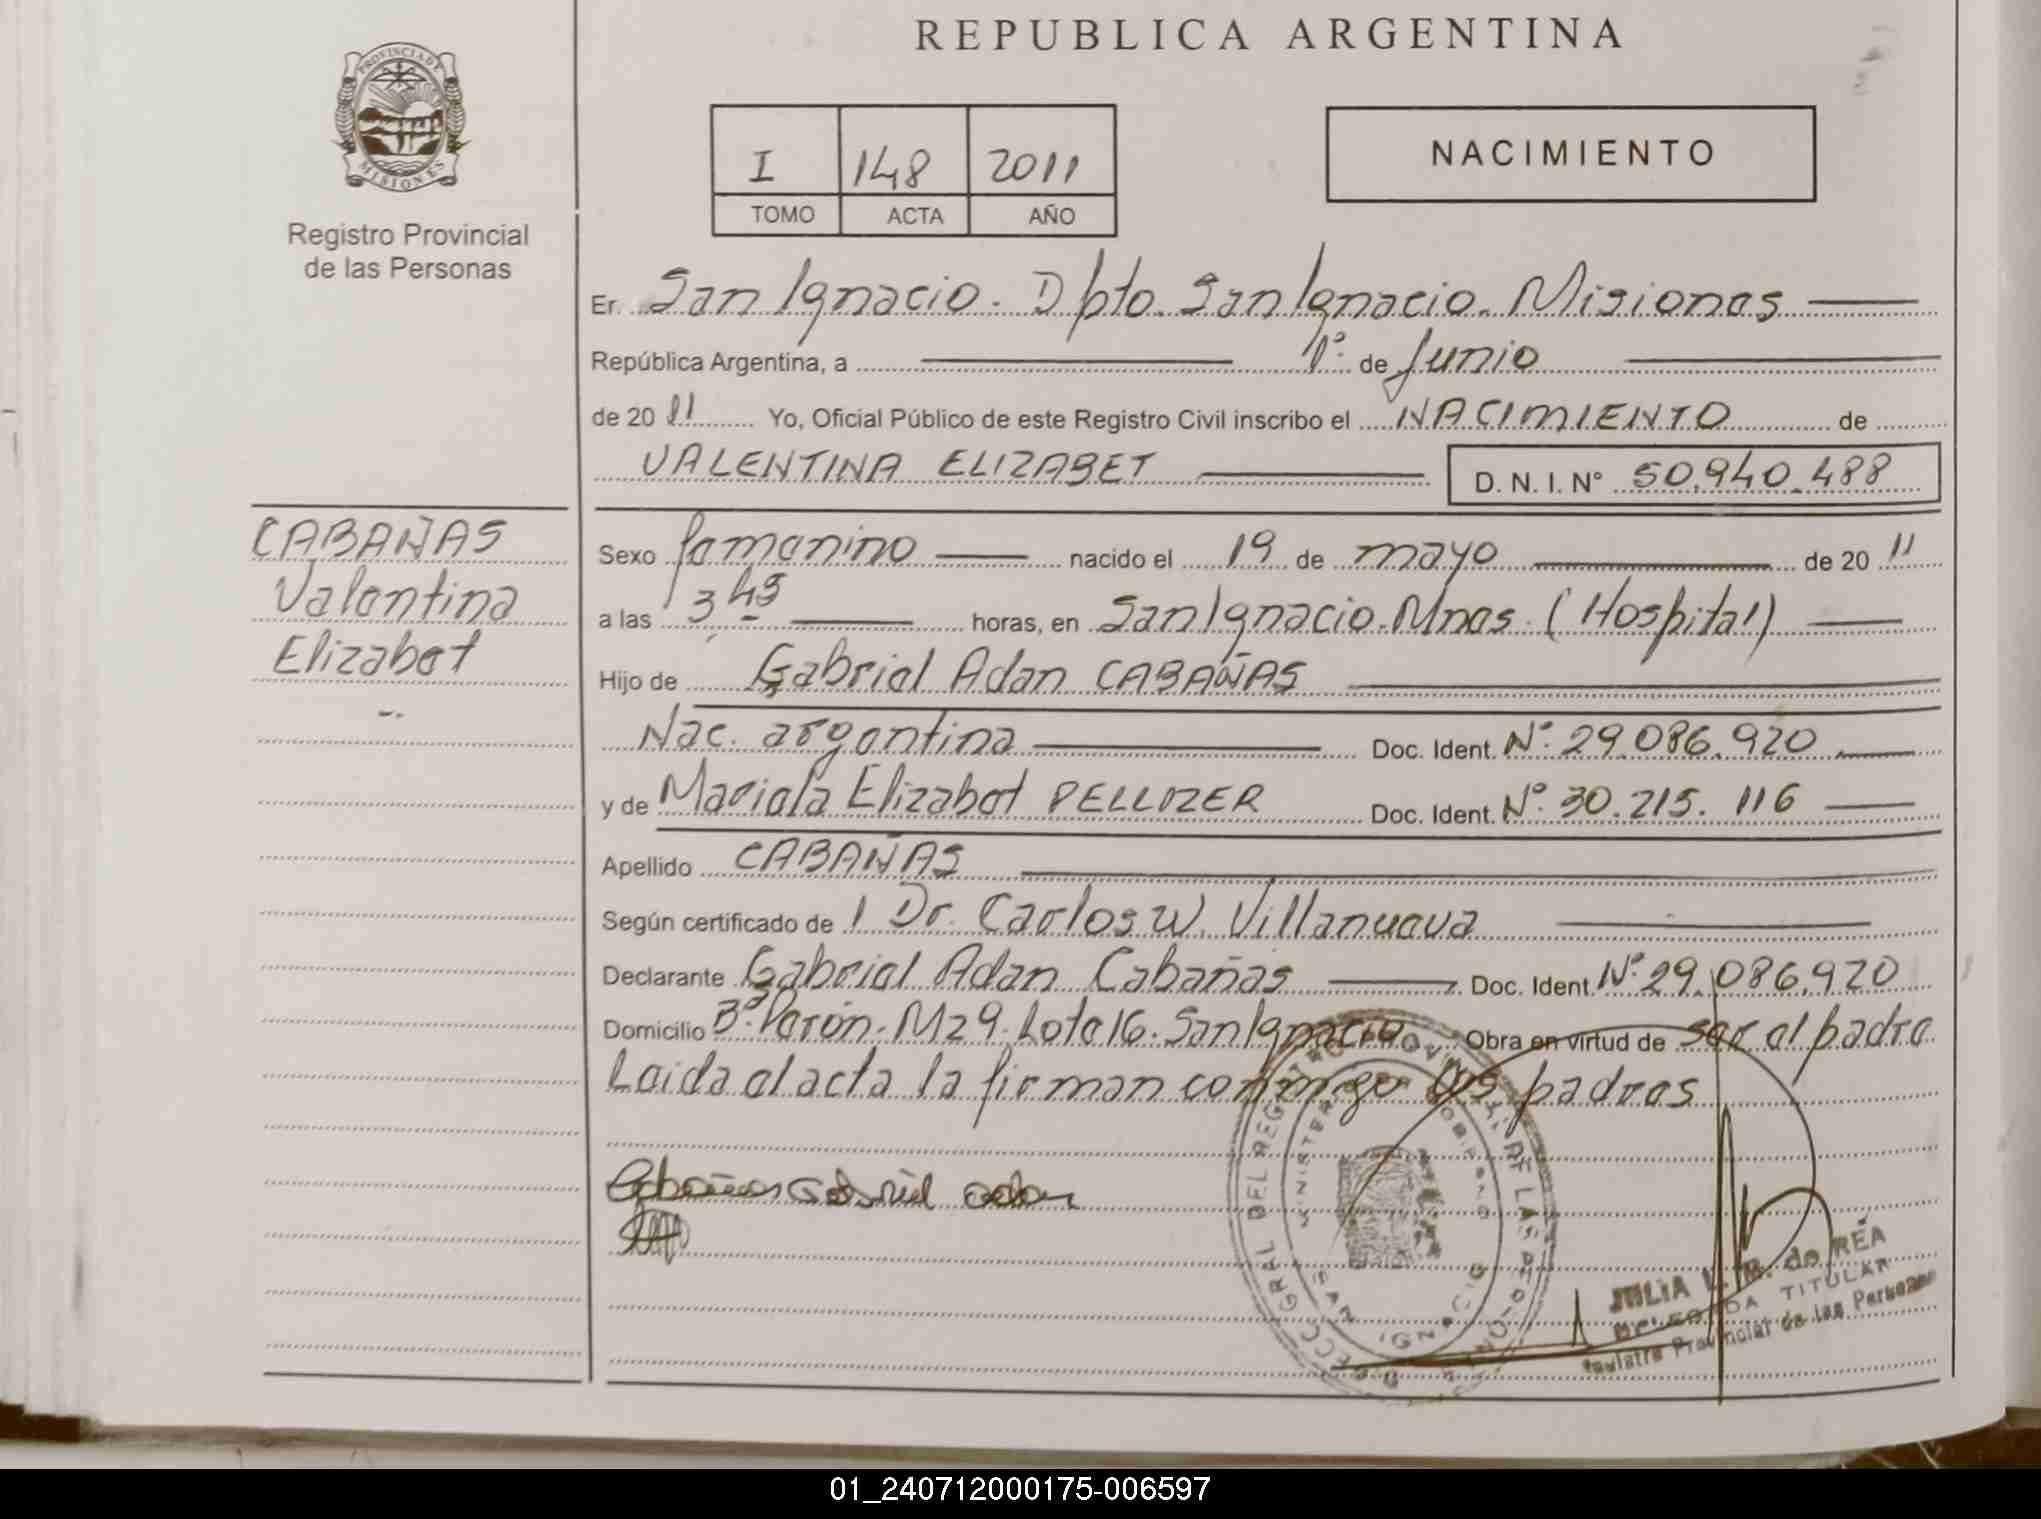 REPUBLICA ARGENTINA
PROVINCIA DE
MISIONES
Registro Provincial
de las Personas
I 148 2011
TOMO ACTA AÑO
NACIMIENTO
En San Ignacio. Dpto. San Ignacio. Misiones
República Argentina, a 1º de Junio
de 2011 Yo, Oficial Público de este Registro Civil inscribo el NACIMIENTO de
VALENTINA ELIZABET D. N. I. N° 50.940.488
CABAÑAS
Valentina
Elizabet
Sexo femenino nacido el 19 de mayo de 2011
a las 3,45 horas, en San Ignacio. Mnes. (Hospital)
Hijo de Gabriel Adan CABAÑAS
Nac. argentina Doc. Ident. Nº. 29.086.920
y de Mariela Elizabet PELLIZER Doc. Ident. Nº. 30.215.116
Apellido CABAÑAS
Según certificado de l Dr. Carlos W. Villanueva
Declarante Gabriel Adan Cabañas Doc. Ident. Nº. 29.086.920
Domicilio Bº. Perón. Mz 9. Lote 16. San Ignacio Obra en virtud de ser el padre
Leida el acta la firman conmigo los padres
Cabañas Gabriel Adan
DIRECC. GRAL. DEL REGISTRO PROVINCIAL DE LAS PERSONAS
MINISTERIO DE GOBIERNO
SAN IGNACIO
JULIA L. R. de REA
DELEGADA TITULAR
Registro Provincial de las Personas
01_240712000175-006597